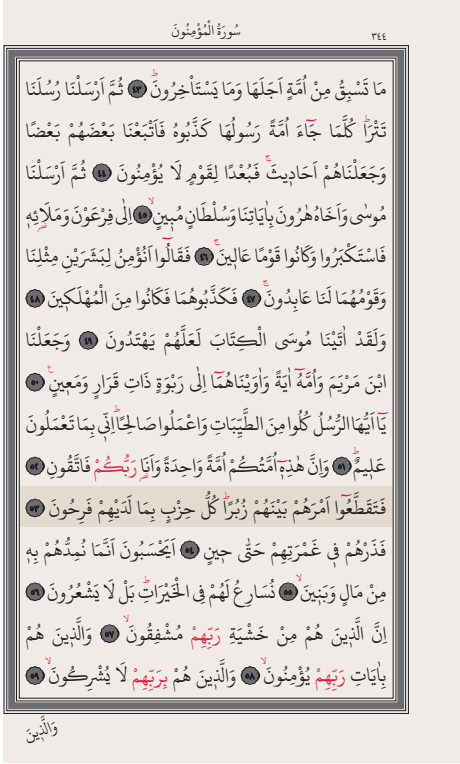 سُورَةُ الْمُؤْمِنُونَ
٣٤٤
مَا تَسْبِقُ مِنْ اُمَّةٍ اَجَلَهَا وَمَا يَسْتَأْخِرُونَۜ ﴿٤٣﴾ ثُمَّ اَرْسَلْنَا رُسُلَنَا
تَتْرَاۜ كُلَّمَا جَٓاءَ اُمَّةً رَسُولُهَا كَذَّبُوهُ فَاَتْبَعْنَا بَعْضَهُمْ بَعْضًا
وَجَعَلْنَاهُمْ اَحَاد۪يثَۚ فَبُعْدًا لِقَوْمٍ لَا يُؤْمِنُونَ ﴿٤٤﴾ ثُمَّ اَرْسَلْنَا
مُوسٰى وَاَخَاهُ هٰرُونَ بِاٰيَاتِنَا وَسُلْطَانٍ مُب۪ينٍۙ ﴿٤٥﴾ اِلٰى فِرْعَوْنَ وَمَلَا۬ئِه۪
فَاسْتَكْبَرُوا وَكَانُوا قَوْمًا عَال۪ينَۚ ﴿٤٦﴾ فَقَالُٓوا اَنُؤْمِنُ لِبَشَرَيْنِ مِثْلِنَا
وَقَوْمُهُمَا لَنَا عَابِدُونَۚ ﴿٤٧﴾ فَكَذَّبُوهُمَا فَكَانُوا مِنَ الْمُهْلَك۪ينَ ﴿٤٨﴾
وَلَقَدْ اٰتَيْنَا مُوسَى الْكِتَابَ لَعَلَّهُمْ يَهْتَدُونَ ﴿٤٩﴾ وَجَعَلْنَا
ابْنَ مَرْيَمَ وَاُمَّهُٓ اٰيَةً وَاٰوَيْنَاهُمَٓا اِلٰى رَبْوَةٍ ذَاتِ قَرَارٍ وَمَع۪ينٍ۟ ﴿٥٠﴾
يَٓا اَيُّهَا الرُّسُلُ كُلُوا مِنَ الطَّيِّبَاتِ وَاعْمَلُوا صَالِحًاۜ اِنّ۪ي بِمَا تَعْمَلُونَ
عَل۪يمٌۜ ﴿٥١﴾ وَاِنَّ هٰذِه۪ٓ اُمَّتُكُمْ اُمَّةً وَاحِدَةً وَاَنَا۬ رَبُّكُمْ فَاتَّقُونِ ﴿٥٢﴾
فَتَقَطَّعُٓوا اَمْرَهُمْ بَيْنَهُمْ زُبُرًاۜ كُلُّ حِزْبٍ بِمَا لَدَيْهِمْ فَرِحُونَ ﴿٥٣﴾
فَذَرْهُمْ ف۪ي غَمْرَتِهِمْ حَتّٰى ح۪ينٍ ﴿٥٤﴾ اَيَحْسَبُونَ اَنَّمَا نُمِدُّهُمْ بِه۪
مِنْ مَالٍ وَبَن۪ينَۙ ﴿٥٥﴾ نُسَارِعُ لَهُمْ فِي الْخَيْرَاتِۜ بَلْ لَا يَشْعُرُونَ ﴿٥٦﴾
اِنَّ الَّذ۪ينَ هُمْ مِنْ خَشْيَةِ رَبِّهِمْ مُشْفِقُونَۙ ﴿٥٧﴾ وَالَّذ۪ينَ هُمْ
بِاٰيَاتِ رَبِّهِمْ يُؤْمِنُونَۙ ﴿٥٨﴾ وَالَّذ۪ينَ هُمْ بِرَبِّهِمْ لَا يُشْرِكُونَۙ ﴿٥٩﴾
وَالَّذ۪ينَ